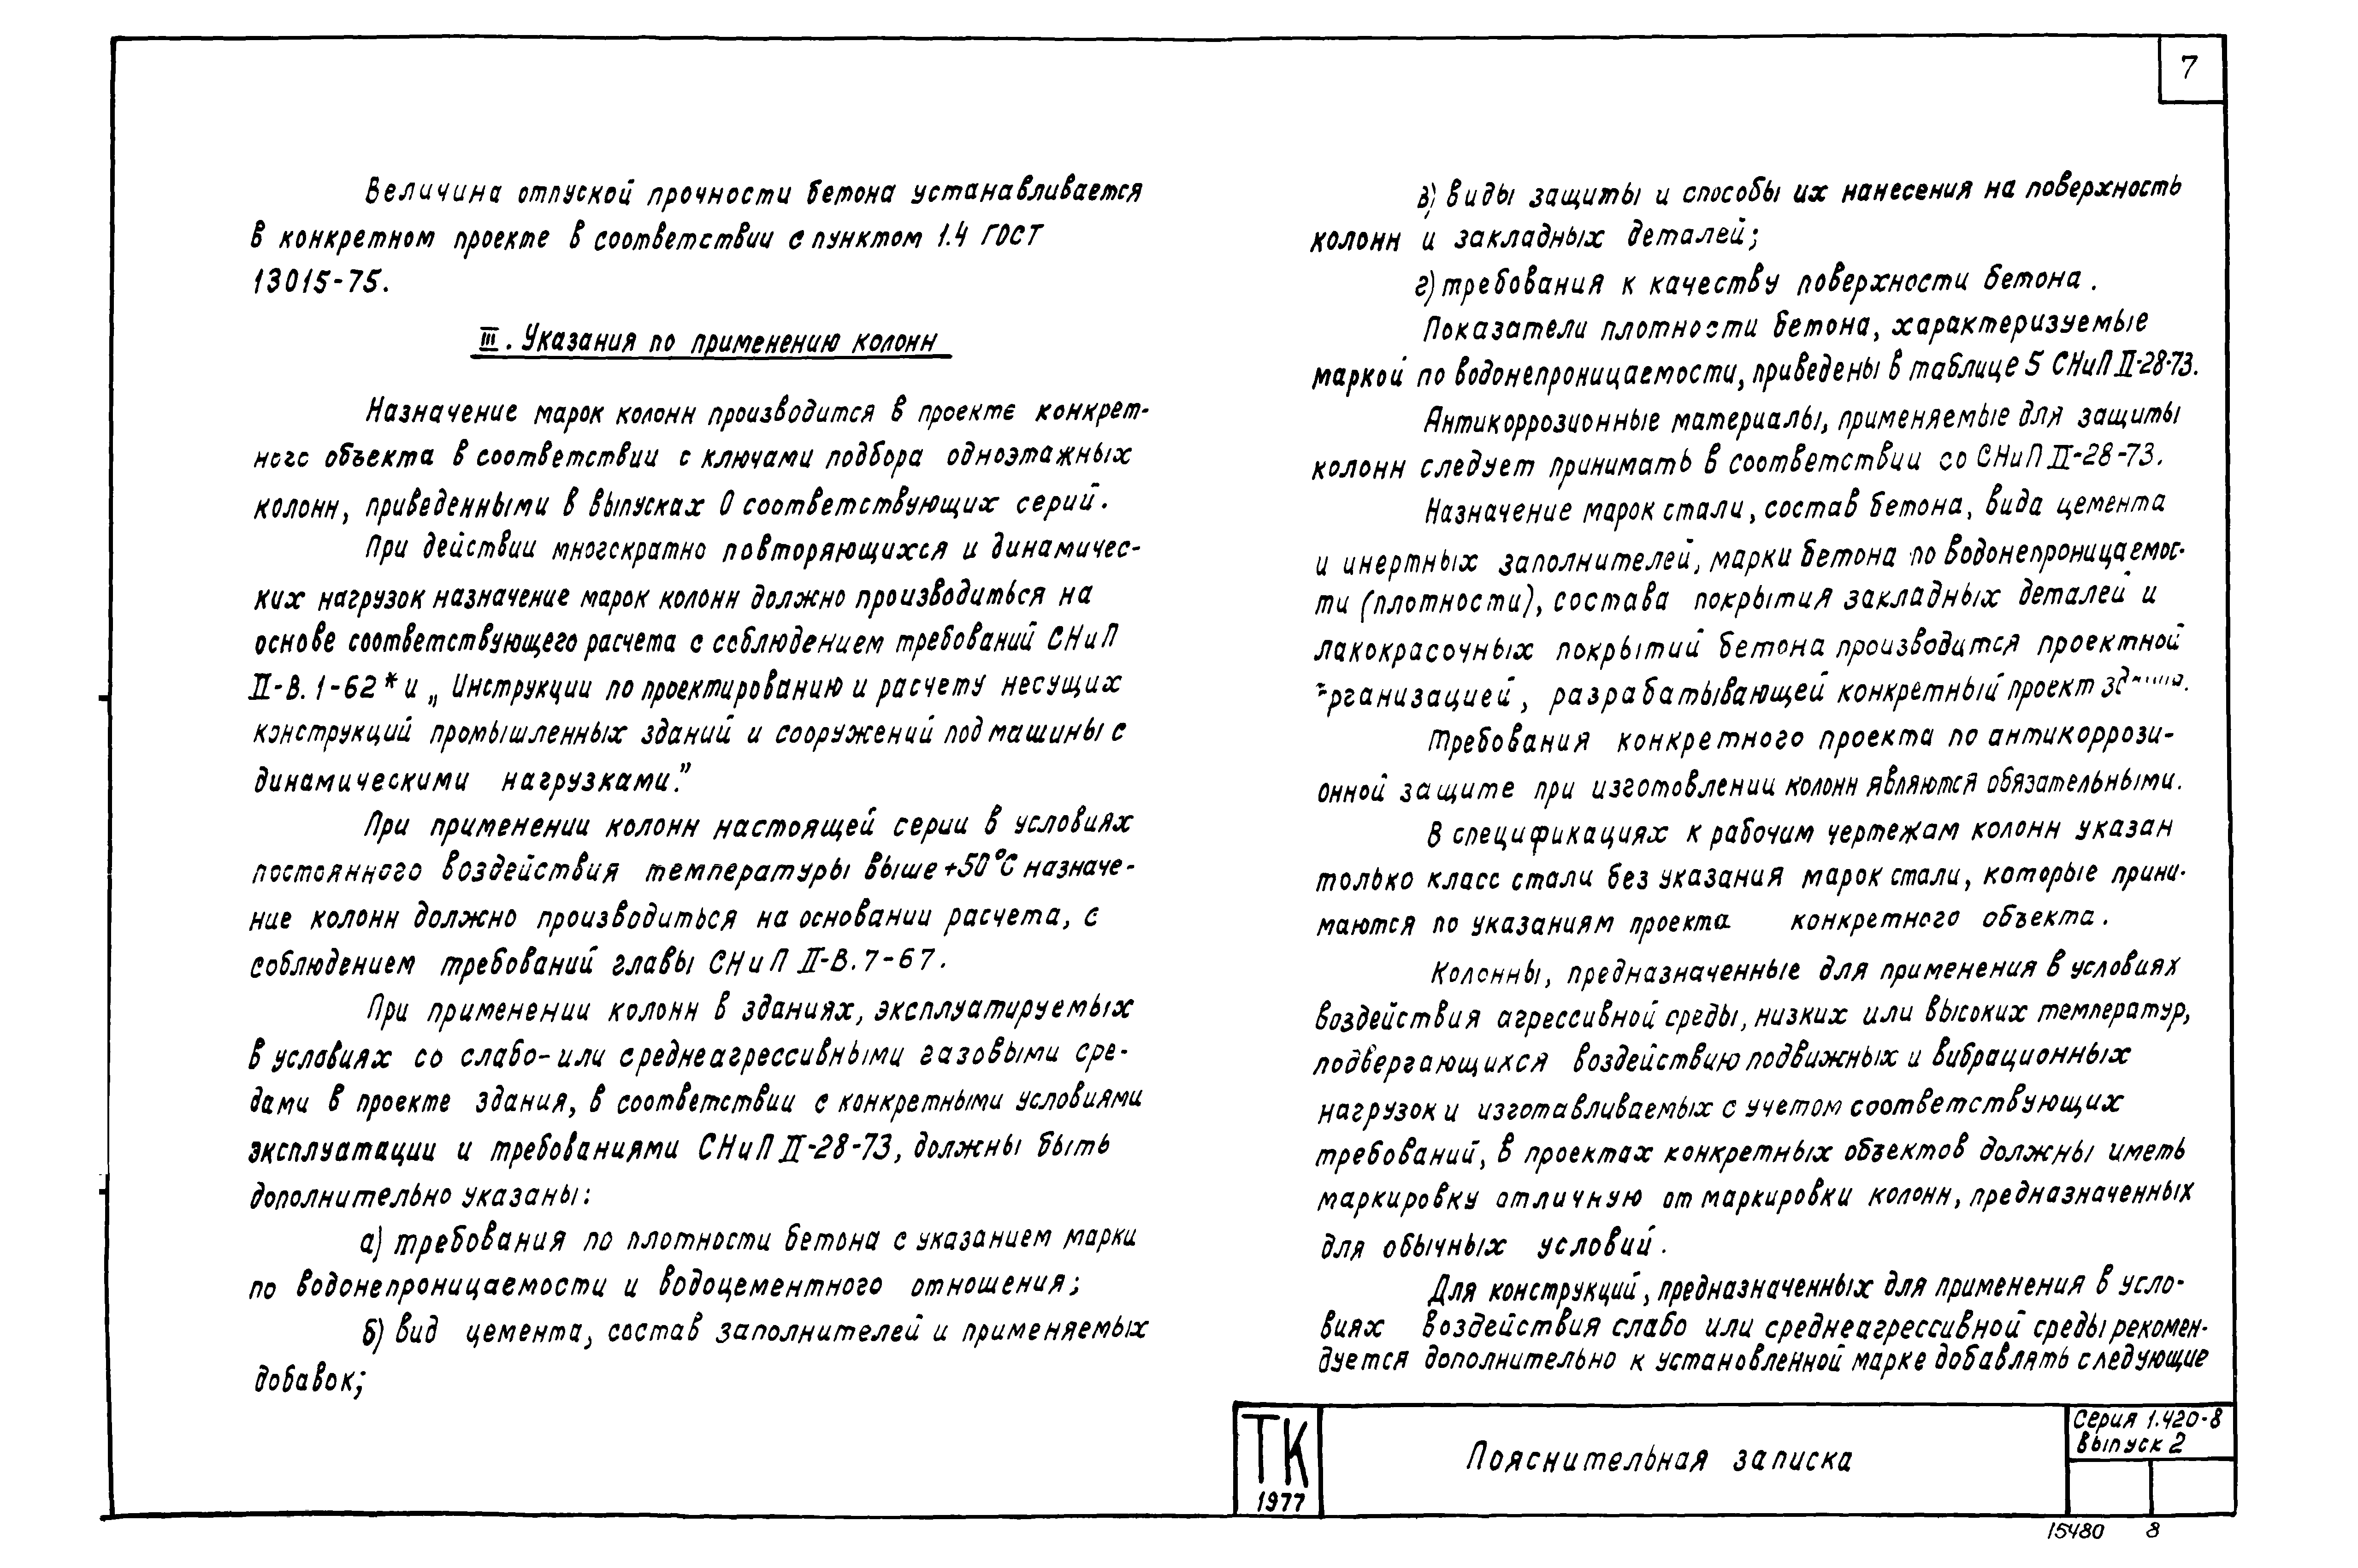 7
Величина отпуской прочности бетона устанавливается
в конкретном проекте в соответствии с пунктом 1.4 ГОСТ
13015-75.
III. Указания по применению колонн
Назначение марок колонн производится в проекте конкрет-
ного объекта в соответствии с ключами подбора одноэтажных
колонн, приведенными в выпусках 0 соответствующих серий.
При действии многократно повторяющихся и динамичес-
ких нагрузок назначение марок колонн должно производиться на
основе соответствующего расчета с соблюдением требований СНиП
II-В.1-62* и „Инструкции по проектированию и расчету несущих
конструкций промышленных зданий и сооружений под машины с
динамическими нагрузками."
При применении колонн настоящей серии в условиях
постоянного воздействия температуры выше +50°С назначе-
ние колонн должно производиться на основании расчета, с
соблюдением требований главы СНиП II-В.7-67.
При применении колонн в зданиях, эксплуатируемых
в условиях со слабо- или среднеагрессивными газовыми сре-
дами в проекте здания, в соответствии с конкретными условиями
эксплуатации и требованиями СНиП II-28-73, должны быть
дополнительно указаны:
а) требования по плотности бетона с указанием марки
по водонепроницаемости и водоцементного отношения;
б) вид цемента, состав заполнителей и применяемых
добавок;
в) виды защиты и способы их нанесения на поверхность
колонн и закладных деталей;
г) требования к качеству поверхности бетона.
Показатели плотности бетона, характеризуемые
маркой по водонепроницаемости, приведены в таблице 5 СНиП II-28-73.
Антикоррозионные материалы, применяемые для защиты
колонн следует принимать в соответствии со СНиП II-28-73.
Назначение марок стали, состав бетона, вида цемента
и инертных заполнителей, марки бетона по водонепроницаемос-
ти (плотности), состава покрытия закладных деталей и
лакокрасочных покрытий бетона производится проектной
организацией, разрабатывающей конкретный проект
Требования конкретного проекта по антикоррози-
онной защите при изготовлении колонн являются обязательными.
В спецификациях к рабочим чертежам колонн указан
только класс стали без указания марок стали, которые прини-
маются по указаниям проекта конкретного объекта.
Колонны, предназначенные для применения в условиях
воздействия агрессивной среды, низких или высоких температур,
подвергающихся воздействию подвижных и вибрационных
нагрузок и изготавливаемых с учетом соответствующих
требований, в проектах конкретных объектов должны иметь
маркировку отличную от маркировки колонн, предназначенных
для обычных условий.
Для конструкций, предназначенных для применения в усло-
виях воздействия слабо или среднеагрессивной среды рекомен-
дуется дополнительно к установленной марке добавлять следующие
ТК
1977
Пояснительная записка
Серия 1.420-8
выпуск 2
15480 8